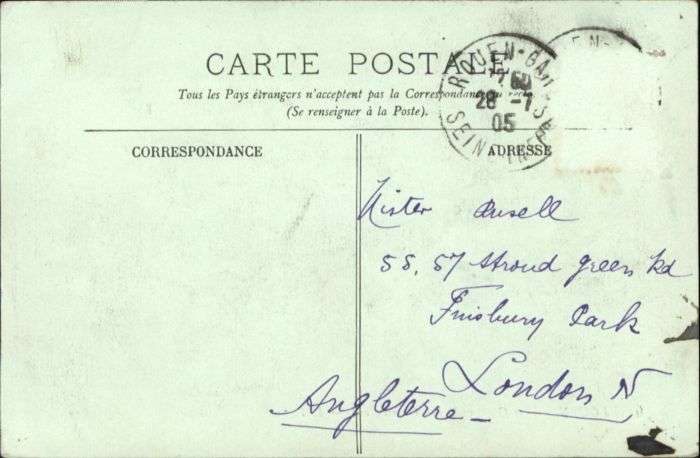 CARTE POSTALE
Tous les Pays étrangers n'acceptent pas la Correspondance au recto
(Se renseigner à la Poste).
ROUEN-GARE
28 -7
05
SEINE INFRE
CORRESPONDANCE
ADRESSE
Mister Ansell
55, 57 Stroud green Rd
Finsbury Park
London N
Angleterre